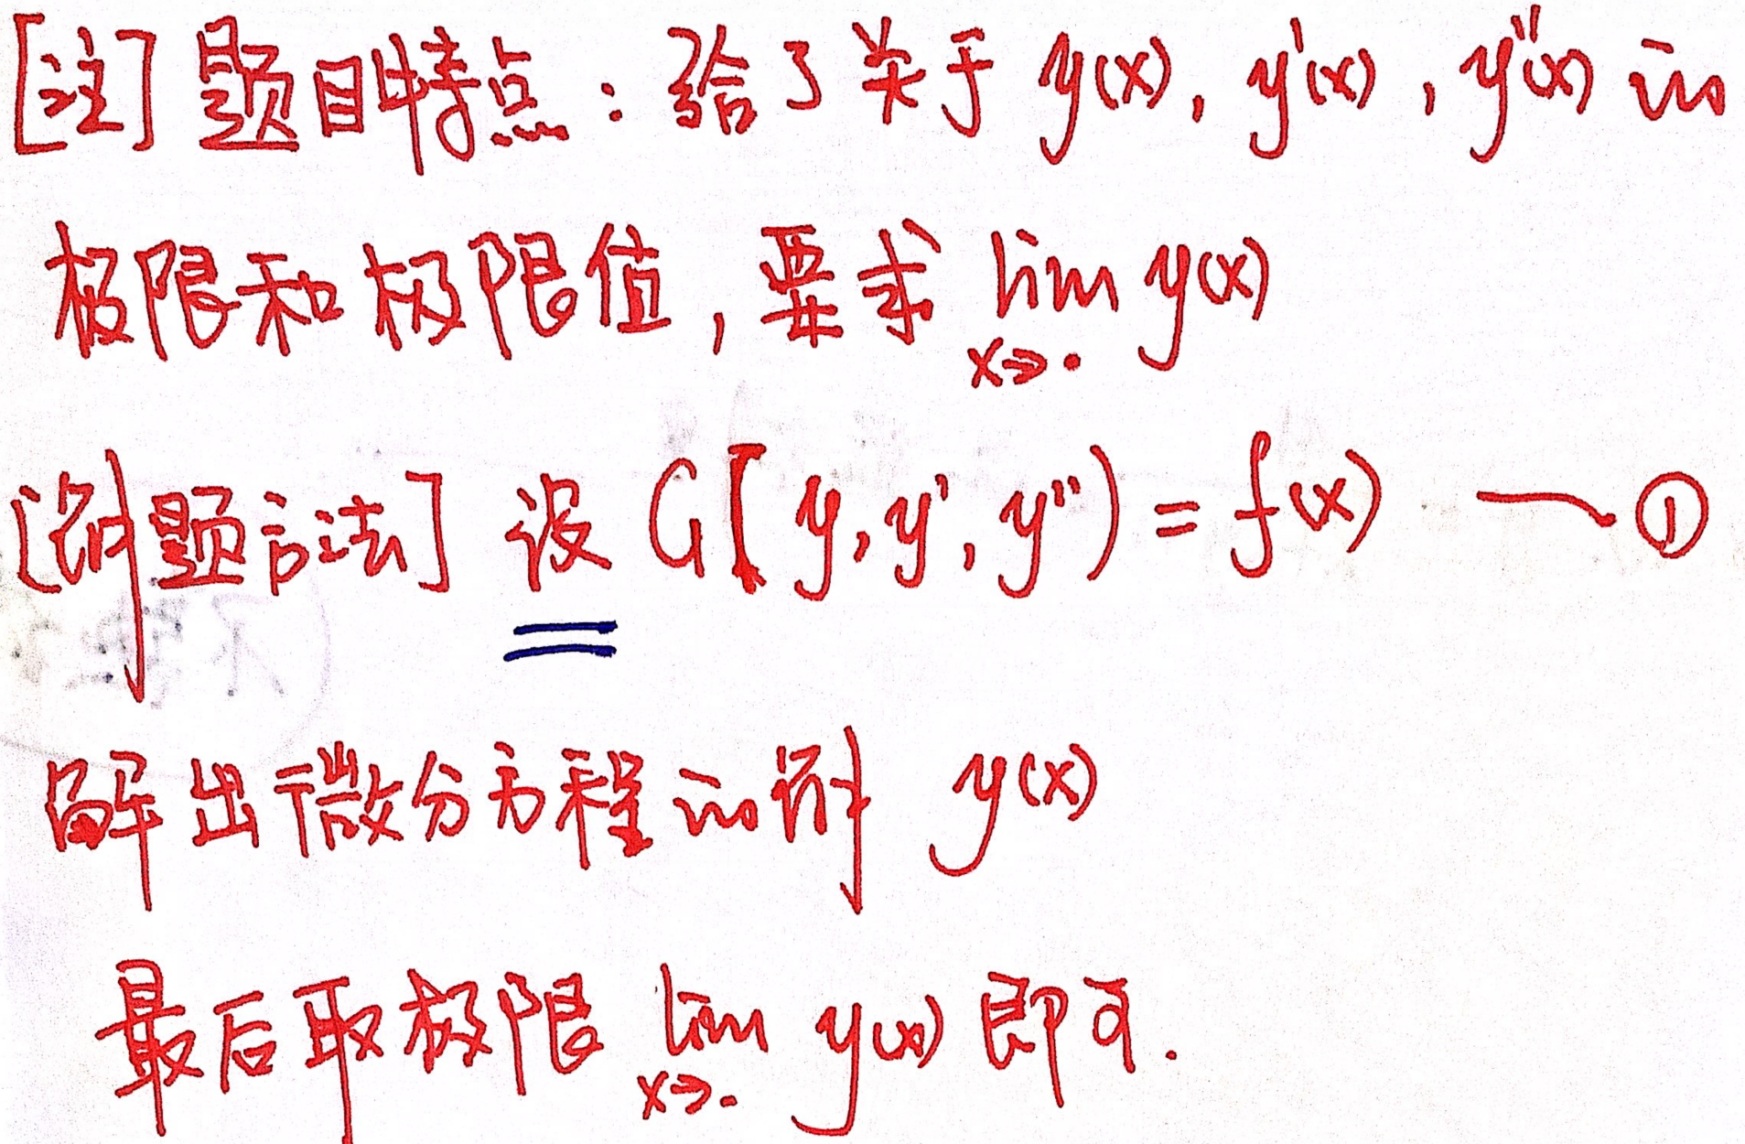 [注] 题目特点：给了关于 y(x), y'(x), y''(x) 的
极限和极限值, 要求 lim y(x)
x→·
[解题方法] 设 G[y, y', y'') = f(x) —— ①
解出微分方程的解 y(x)
最后取极限 lim y(x) 即可.
x→·